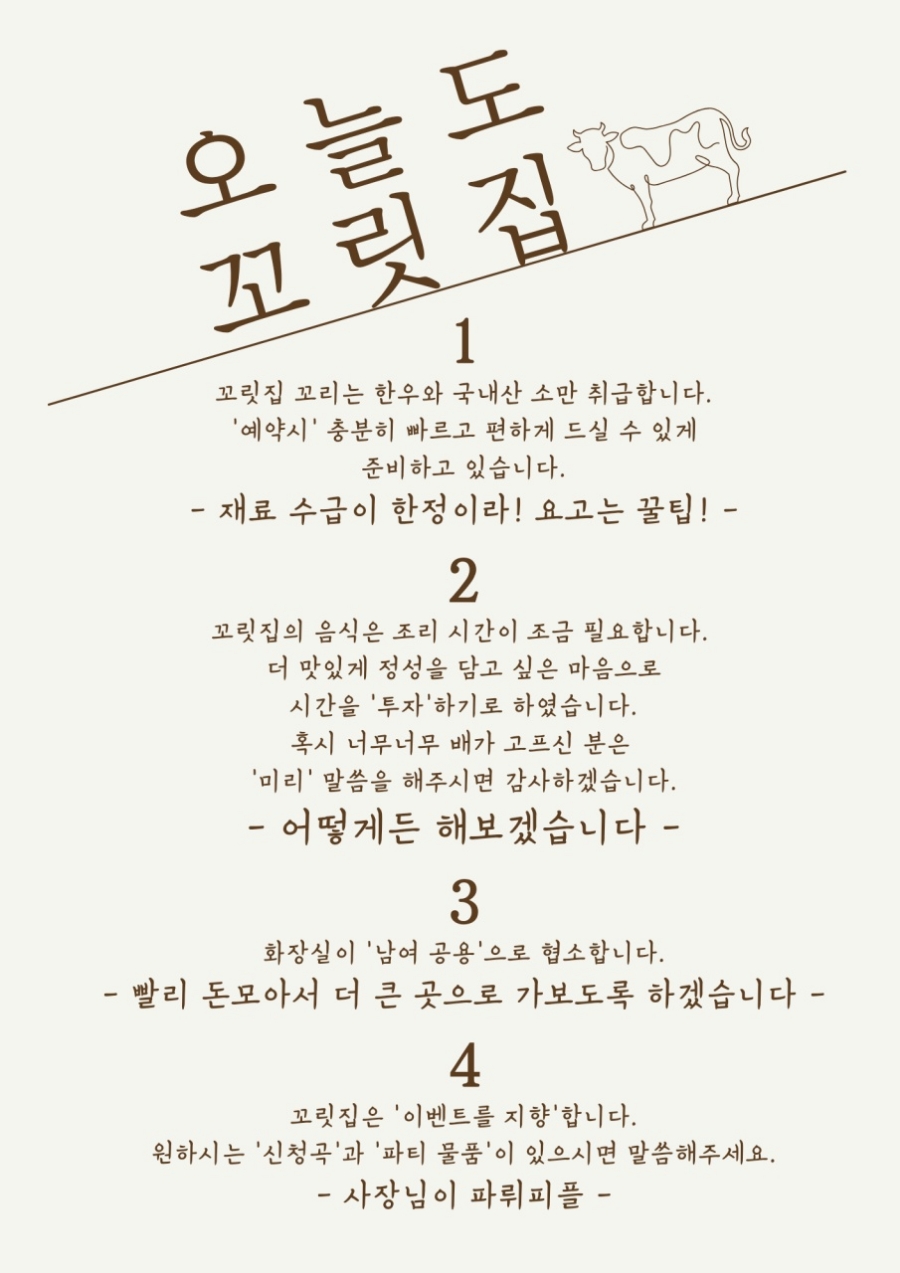 오늘도
꼬릿집
1
꼬릿집 꼬리는 한우와 국내산 소만 취급합니다.
'예약시' 충분히 빠르고 편하게 드실 수 있게
준비하고 있습니다.
- 재료 수급이 한정이라! 요고는 꿀팁! -
2
꼬릿집의 음식은 조리 시간이 조금 필요합니다.
더 맛있게 정성을 담고 싶은 마음으로
시간을 '투자'하기로 하였습니다.
혹시 너무너무 배가 고프신 분은
'미리' 말씀을 해주시면 감사하겠습니다.
- 어떻게든 해보겠습니다 -
3
화장실이 '남여 공용'으로 협소합니다.
- 빨리 돈모아서 더 큰 곳으로 가보도록 하겠습니다 -
4
꼬릿집은 '이벤트를 지향'합니다.
원하시는 '신청곡'과 '파티 물품'이 있으시면 말씀해주세요.
- 사장님이 파뤼피플 -